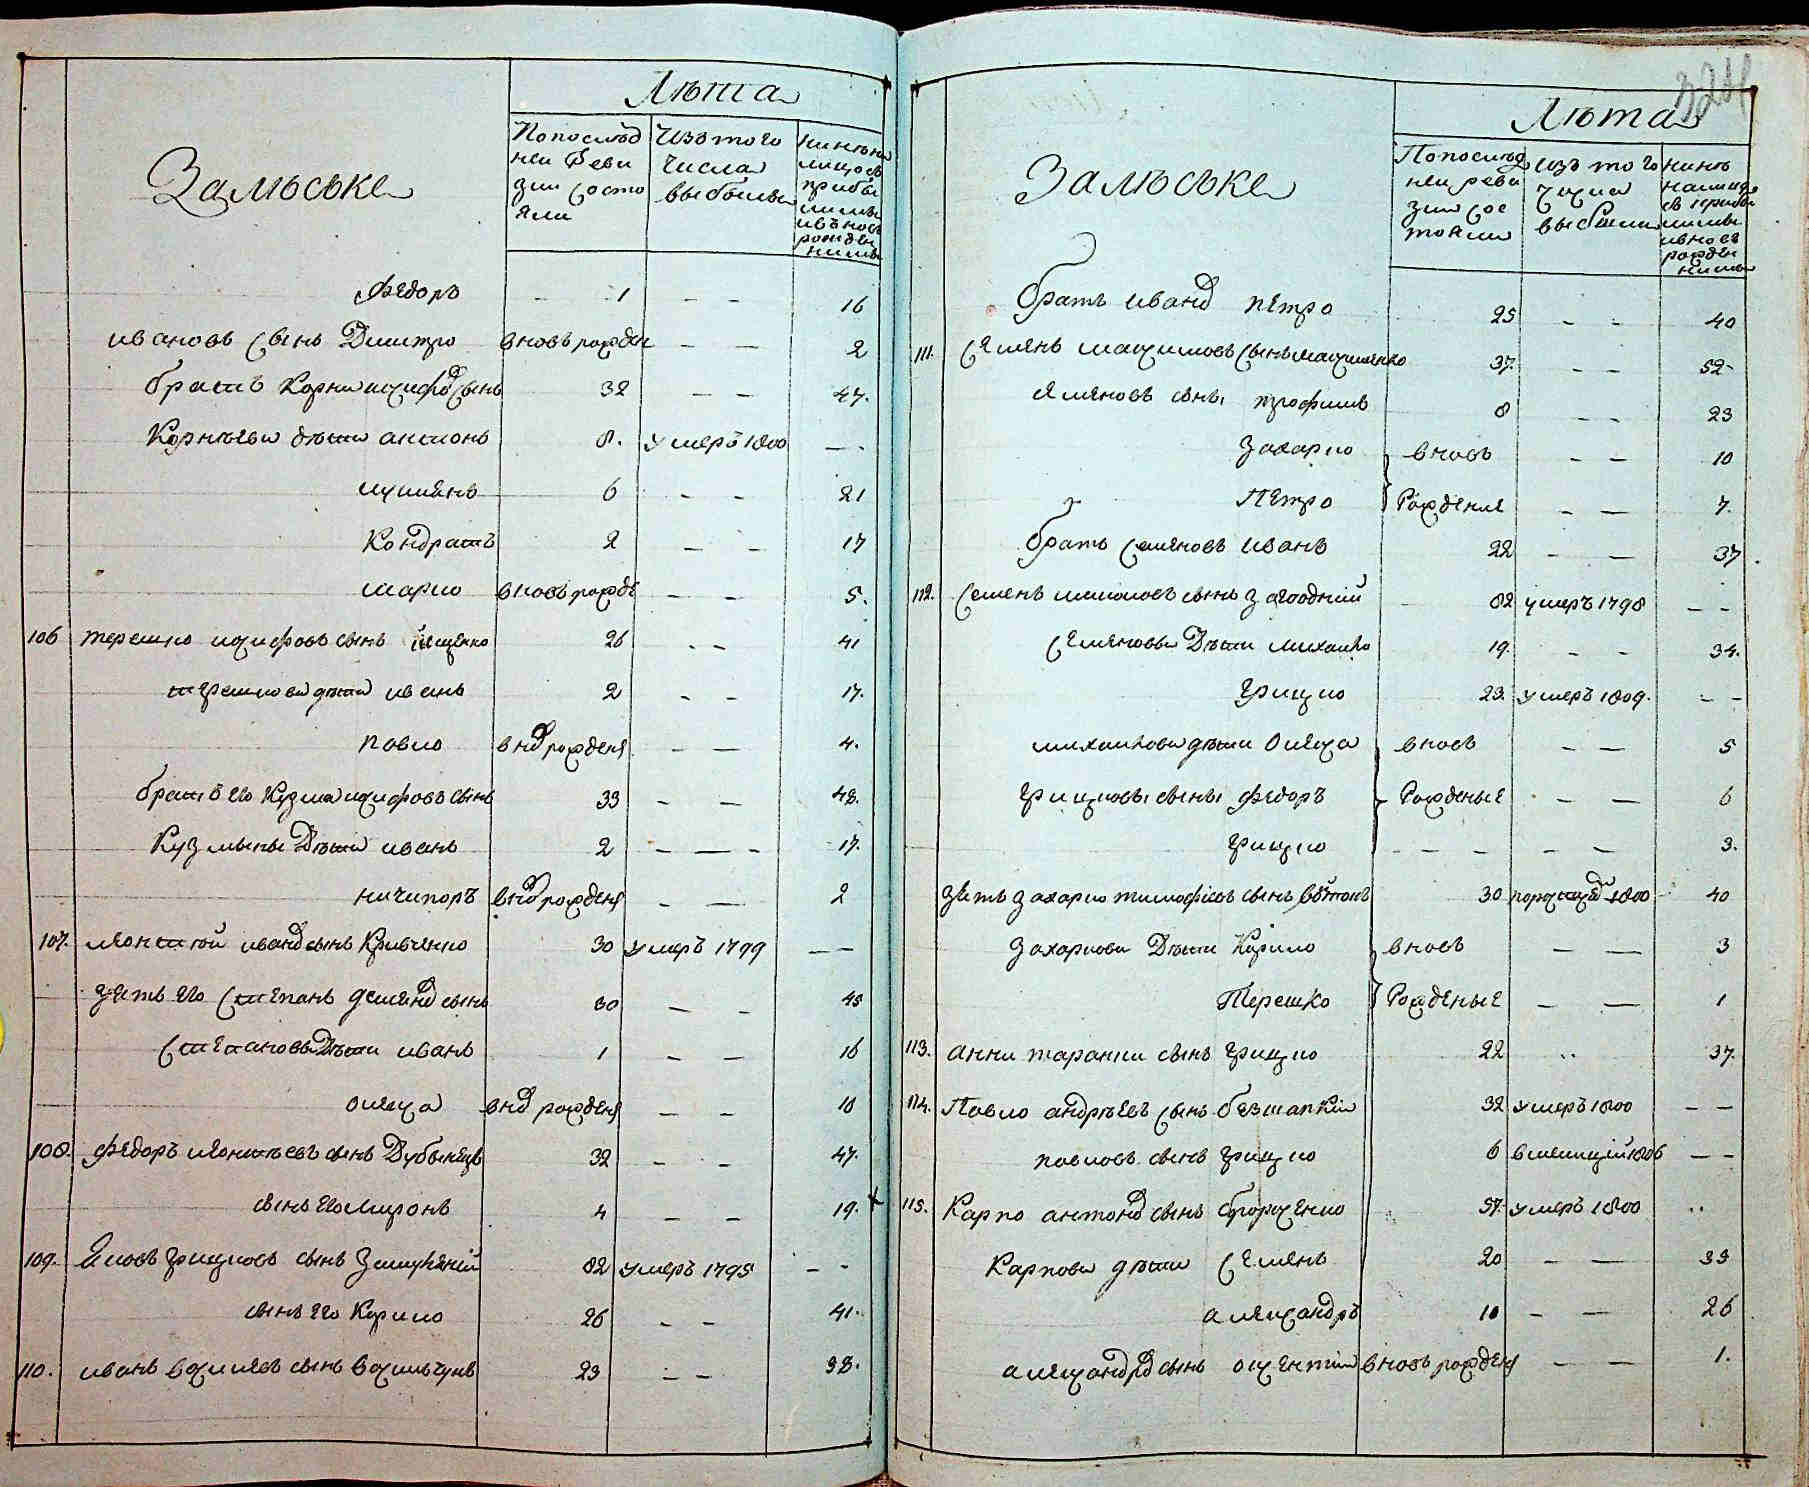 Лѣта
Замѣське
По послѣд
ней Реви
зии состо
яли
Изъ того
числа
выбыли
Нинѣ на
лицо съ
прибы
лими
и вновь
рожден
ними
Федоръ - 1 - - 16
Ивановъ Сынъ Дмитро вновь рожден - - 2
братъ Корни иосифовъ Сынъ 32 - - 47.
Корнѣеви дѣти антонъ 8. умеръ 1800 - -
лукиянъ 6 - - 21
Кондратъ 2 - - 17
марко вновь рожде - - 5.
106 терешко иосифовъ сынъ 26 - - 41
терешкови дѣти иванъ 2 - - 17.
павло внов рожден - - 4.
братъ его Кузма иосифовъ сынъ 33 - - 48.
Кузмины Дѣти иванъ 2 - - - 17.
ничипоръ внов рожден - - 2
107. леонтий иванов сынъ Кривченко 30 умеръ 1799 - -
зять его Степанъ демянов сынъ 30 - - 45
Степановы Дѣти иванъ 1 - - 16
олекса внов рожден - - 10
108. Федоръ леонтьевъ сынъ Дубынецъ 32 - - 47.
сынъ его Миронъ 4 - - 19.
109. Яковъ грицковъ сынъ 82 умеръ 1795 - -
сынъ его Кирило 26 - - 41.
110. иванъ василиевъ сынъ василъчукъ 23 - - 38.
324
Лѣта
Замѣське
По послѣд
ней реви
зии сос
тояли
изъ того
числа
выбыли
нинѣ
налицо
съ прибы
лими
и вновь
рожден
ними
братъ Иванов петро 25 - - 40
111. Семенъ максимовъ Сынъ максименко 37. - - 52-
Семеновъ сыны трофимъ 8 - - 23
захарко вновь - - 10
Петро Рожденые - - 7.
братъ Семеновъ Иванъ 22 - - 37
112. Семенъ сынъ загородний 82 умеръ 1798 - -
Семеновы Дѣти михайло 19. - - 34.
грицко 23 умеръ 1809. - -
михайлови дѣти олекса вновь - - 5
грицковы сыны федоръ Рожденые - - 6
грицко - - - - - 3.
зять захарко тимофиевъ сынъ 30 1800 40
захаркови Дѣти Кирило вновь - - 3
Терешко Рожденые - - 1
113. анни таранки сынъ грицко 22 .. 37.
114. Павло андрѣевъ Сынъ безшапкий 32 умеръ 1800 - -
павловъ сынъ грицко 6 1806 - -
115. Карпо антонов сынъ 57. умеръ 1800 ..
Карпови дѣти Семенъ 20 - - 33
александръ 10 - - 26
александров сынъ вновь рожден - - 1.